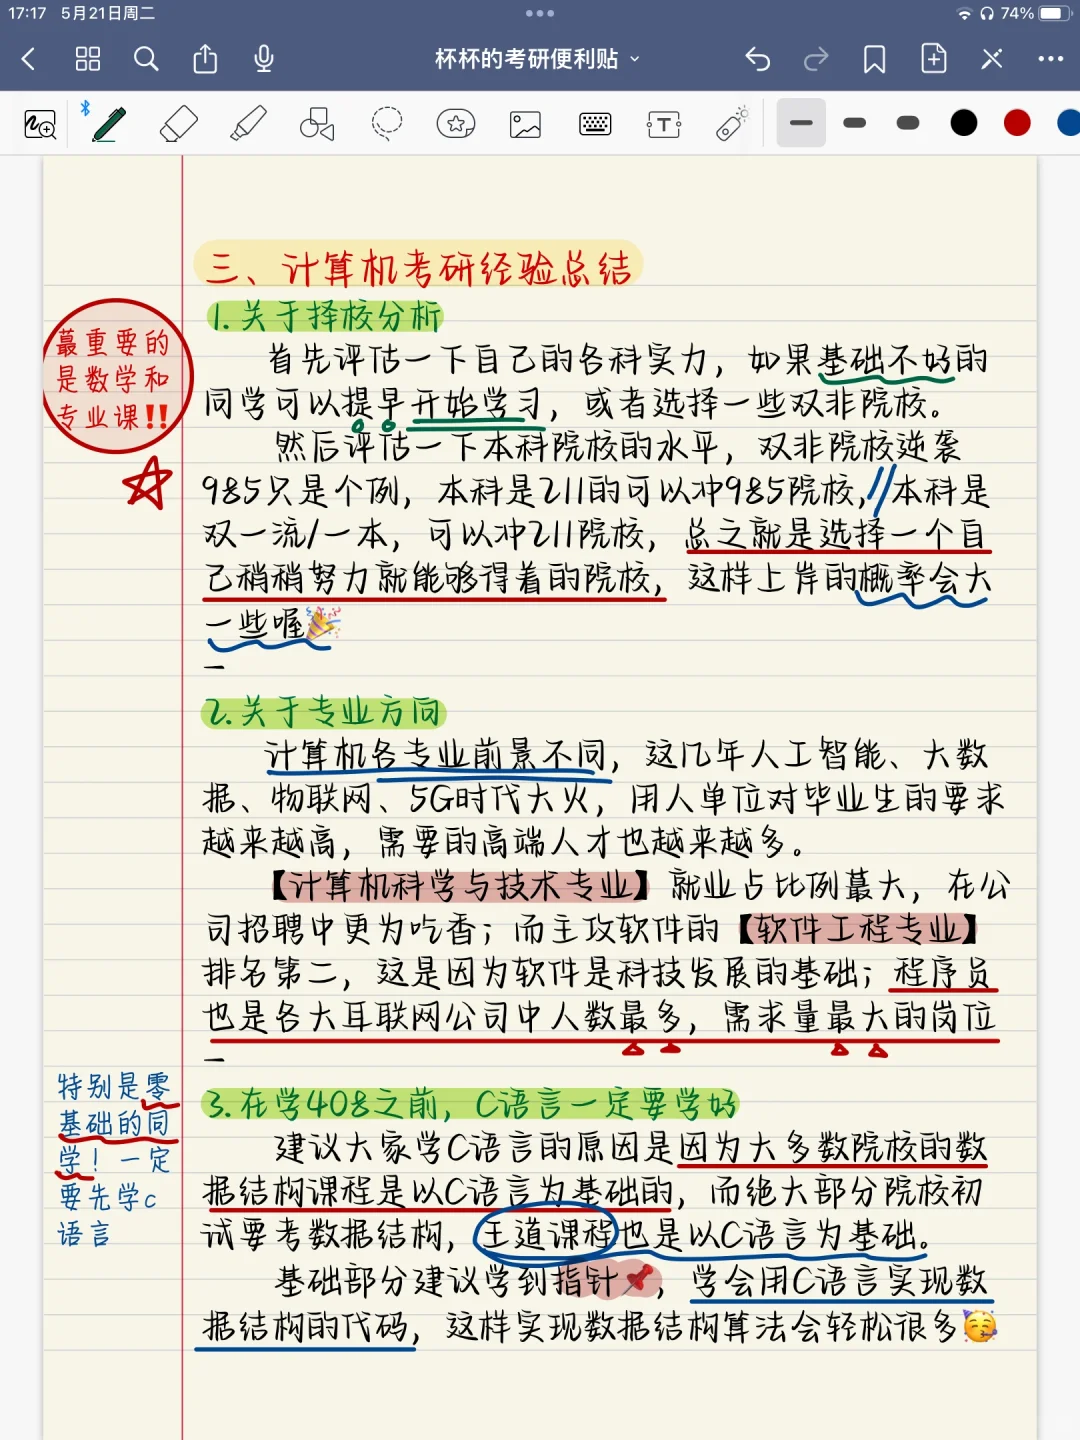 17:17 5月21日周二
74%
杯杯的考研便利贴
T
三、计算机考研经验总结
1.关于择校分析
蕞重要的
是数学和
专业课‼️
首先评估一下自己的各科实力，如果基础不好的
同学可以提早开始学习，或者选择一些双非院校。
然后评估一下本科院校的水平，双非院校逆袭
985只是个例，本科是211的可以冲985院校，//本科是
双一流/一本，可以冲211院校，总之就是选择一个自
己稍稍努力就能够得着的院校，这样上岸的概率会大
一些喔🎉
-
2.关于专业方向
计算机各专业前景不同，这几年人工智能、大数
据、物联网、5G时代大火，用人单位对毕业生的要求
越来越高，需要的高端人才也越来越多。
【计算机科学与技术专业】就业占比例蕞大，在公
司招聘中更为吃香；而主攻软件的【软件工程专业】
排名第二，这是因为软件是科技发展的基础；程序员
也是各大互联网公司中人数最多，需求量最大的岗位
-
特别是零
基础的同
学！一定
要先学c
语言
3.在学408之前，C语言一定要学好
建议大家学C语言的原因是因为大多数院校的数
据结构课程是以C语言为基础的，而绝大部分院校初
试要考数据结构，王道课程也是以C语言为基础。
基础部分建议学到指针📌，学会用C语言实现数
据结构的代码，这样实现数据结构算法会轻松很多🥳